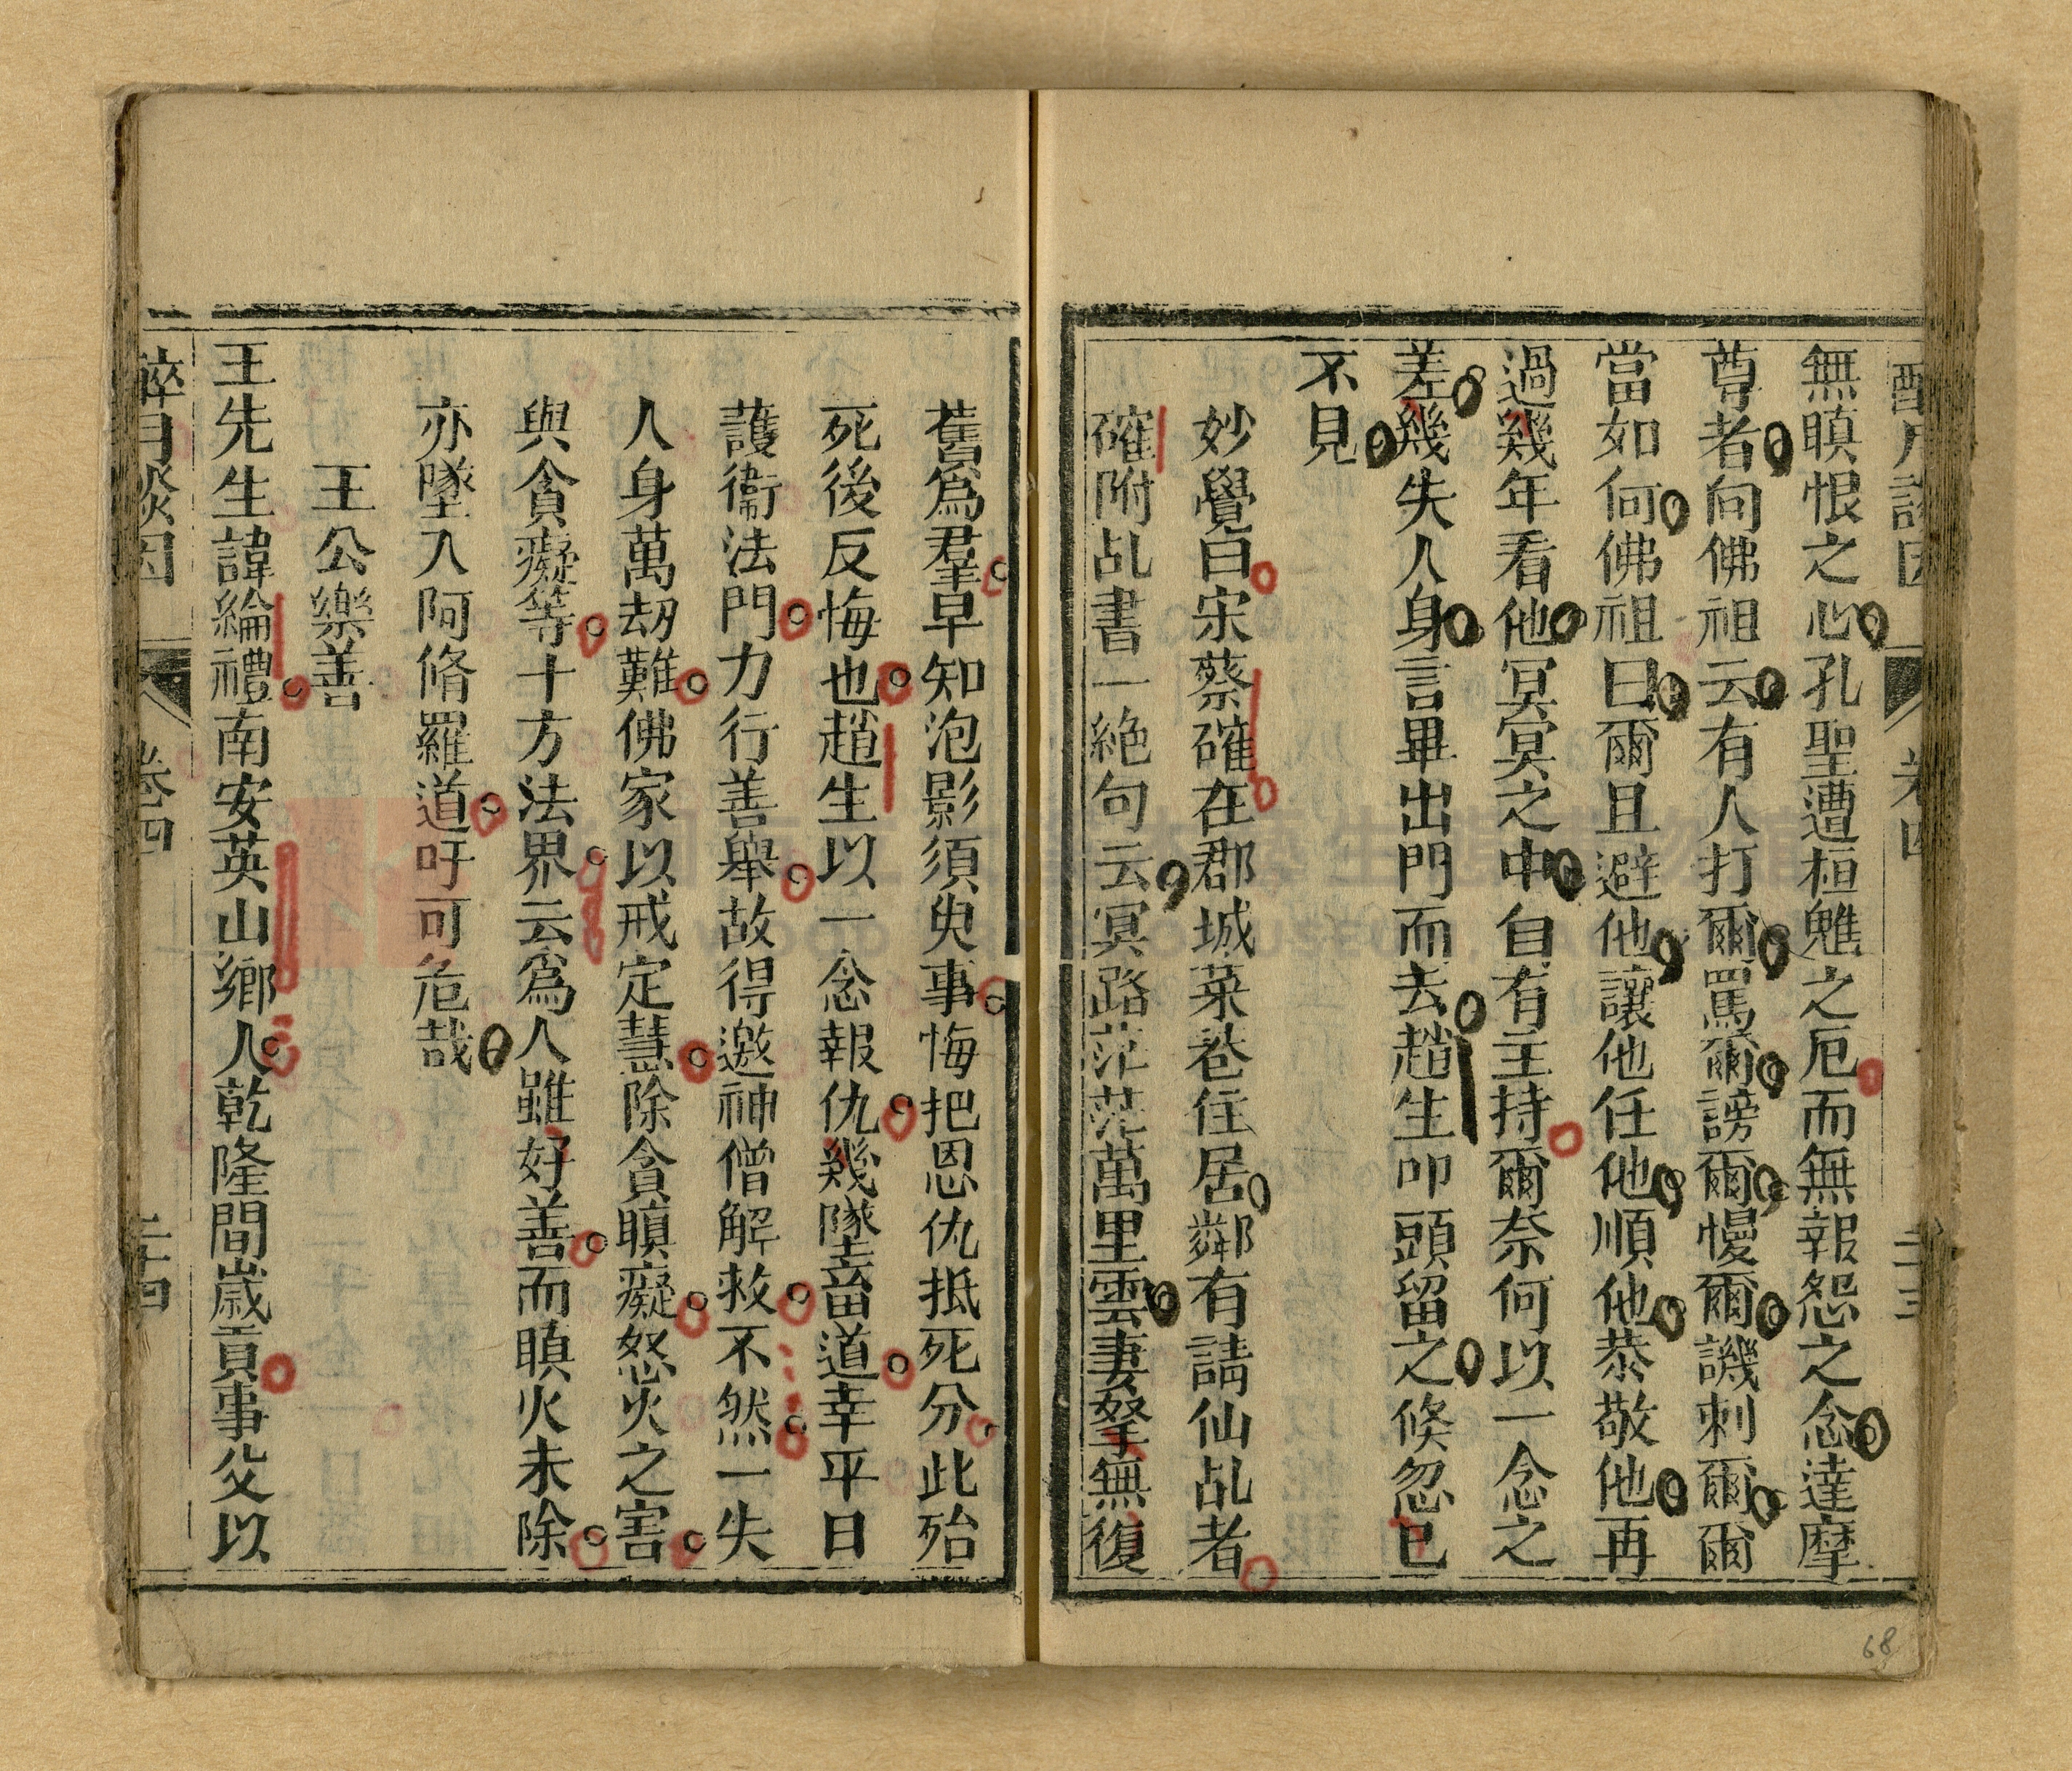 卷四
無瞋恨之心孔聖遭桓魋之厄而無報怨之念達摩
尊者向佛祖云有人打爾罵爾謗爾慢爾譏刺爾爾
當如何佛祖曰爾且避他讓他任他順他恭敬他再
過幾年看他冥冥之中自有主持爾奈何以一念之
差幾失人身言畢出門而去趙生叩頭留之倏忽已
不見
妙覺曰宋蔡確在郡城菜巷住居鄰有請仙乩者
確附乩書一絶句云冥路茫茫萬里雲妻孥無復
舊爲羣早知泡影須臾事悔把恩仇抵死分此殆
死後反悔也趙生以一念報仇幾墜畜道幸平日
護衞法門力行善舉故得邀神僧解救不然一失
人身萬刧難佛家以戒定慧除貪瞋癡怒火之害
與貪癡等十方法界云爲人雖好善而瞋火未除
亦墜入阿脩羅道吁可危哉
王公樂善
王先生諱綸禮南安英山鄉人乾隆間嵗貢事父以
醉月談因
卷四
二十四
68